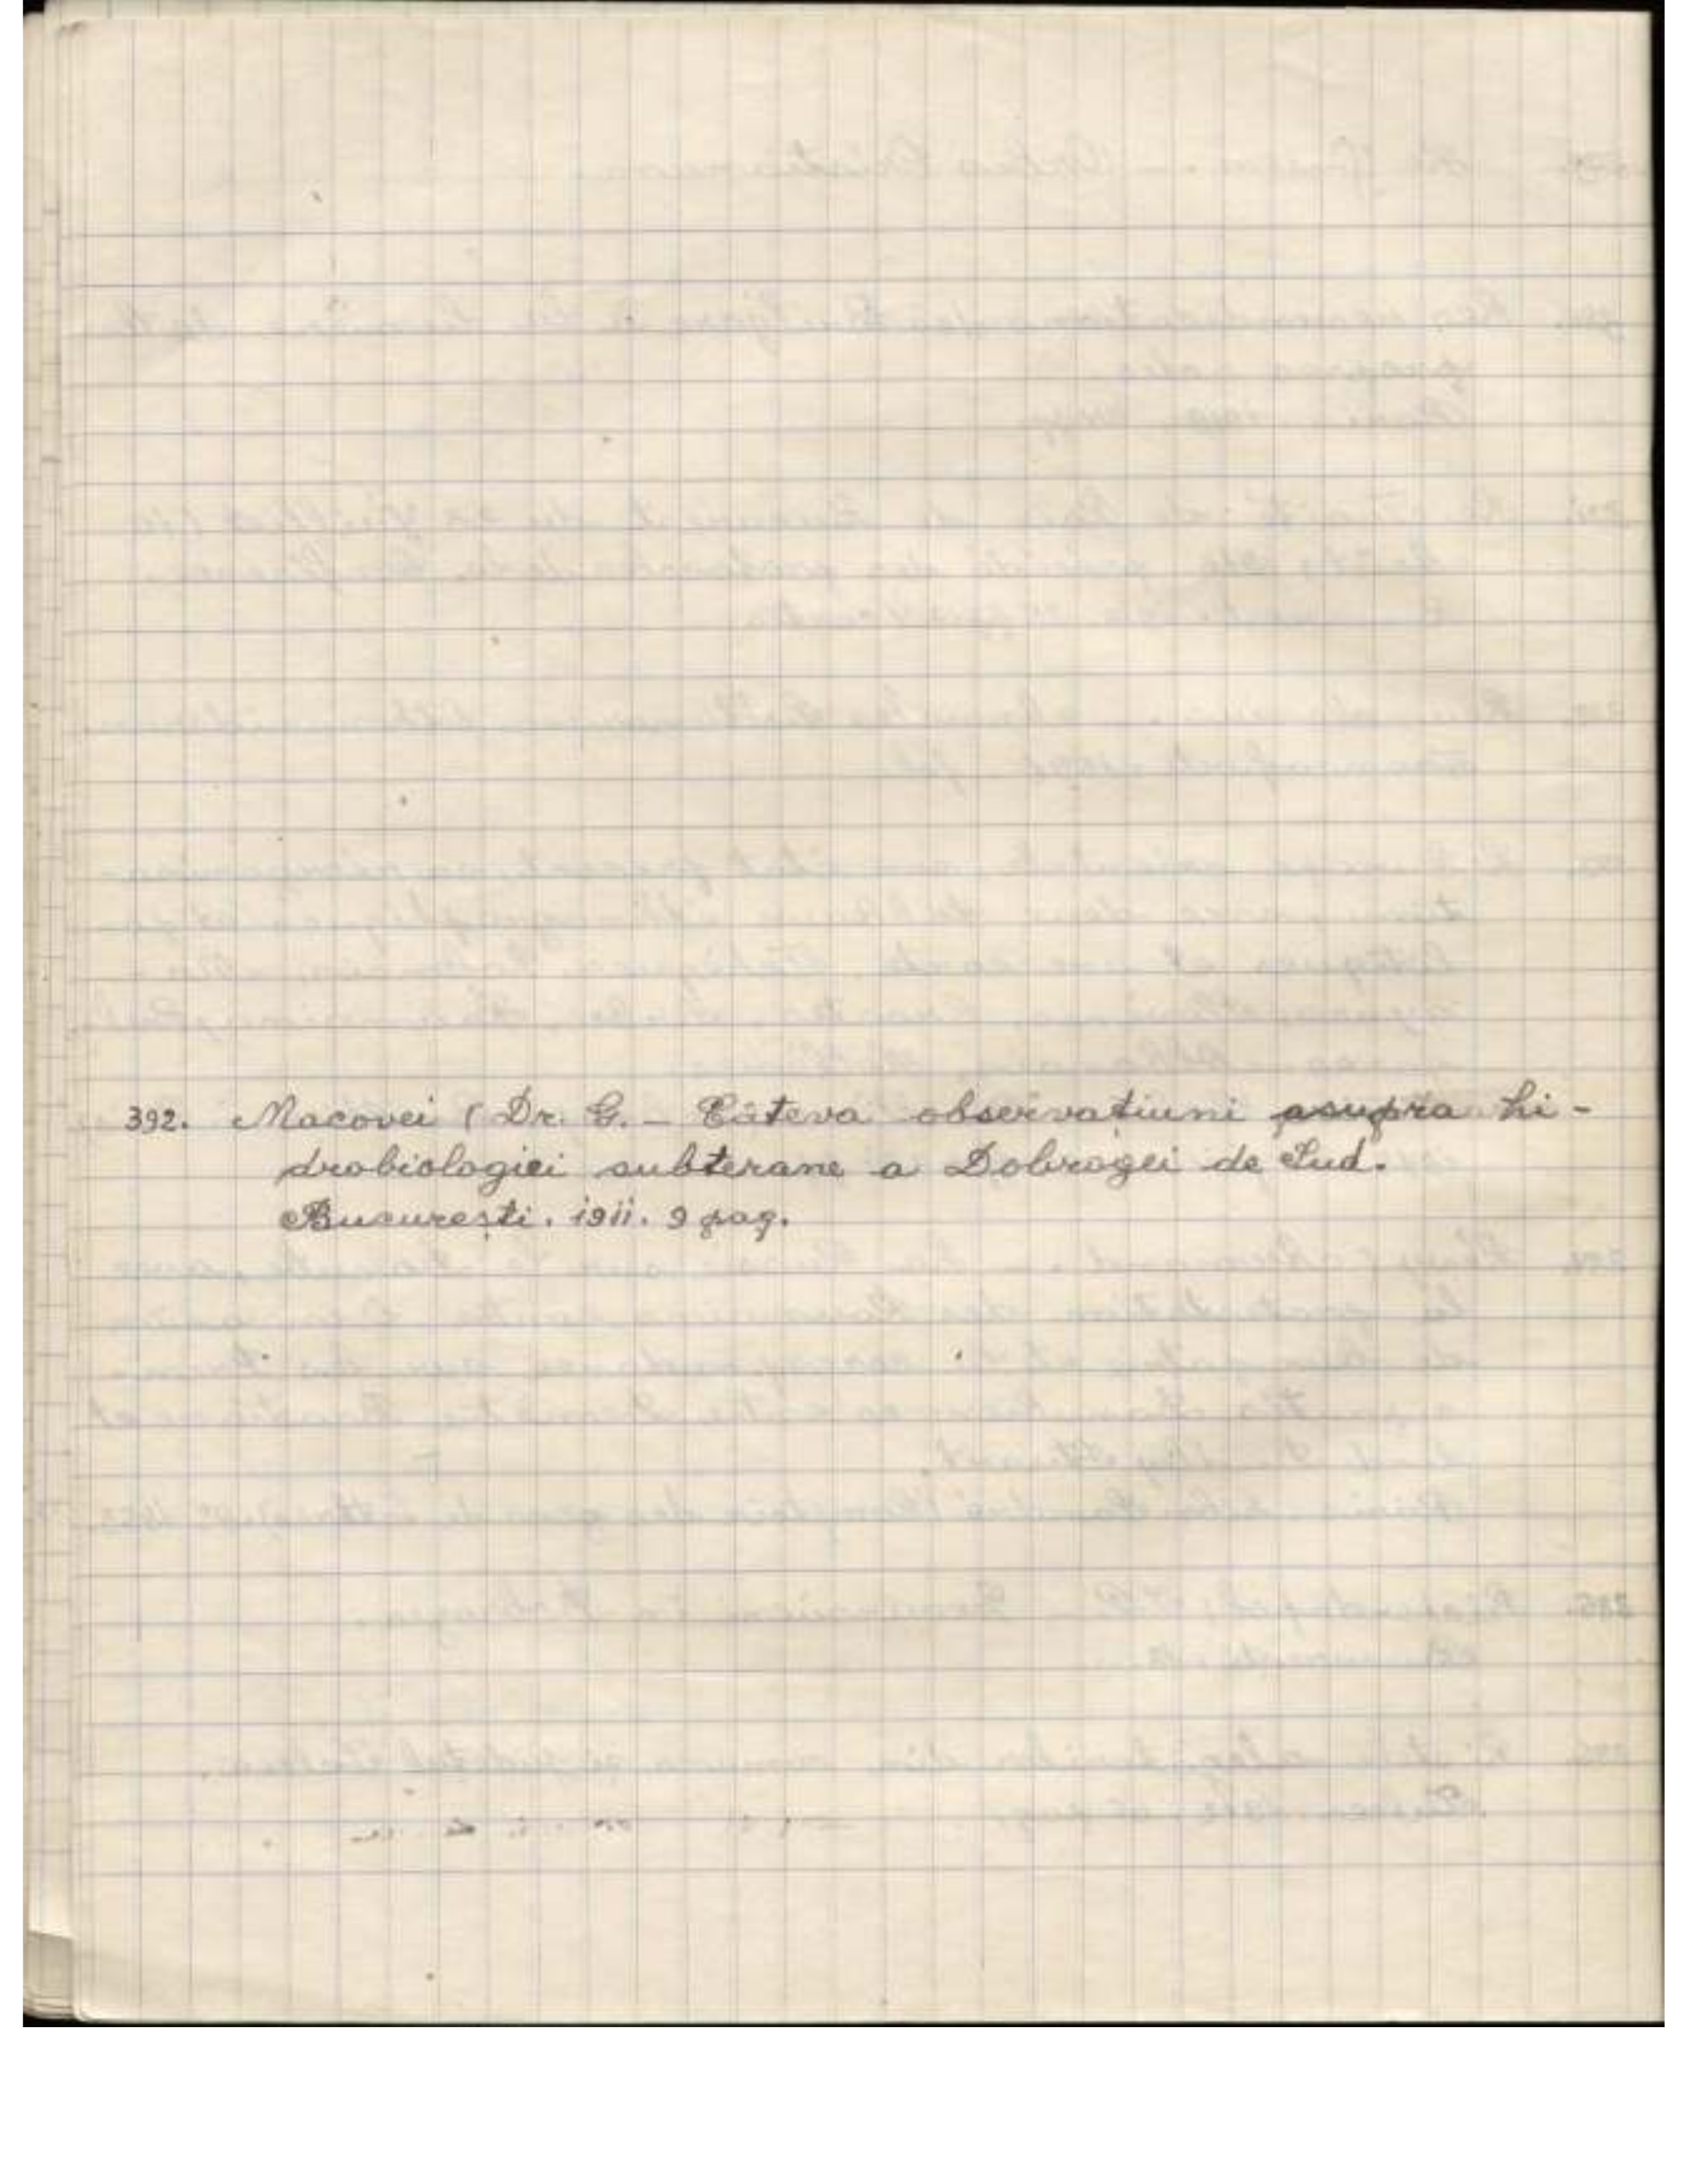 392. Macovei (Dr. G. – Câteva observațiuni asupra hi-
drobiologiei subterane a Dobrogei de Sud.
București. 1911. 9 pag.